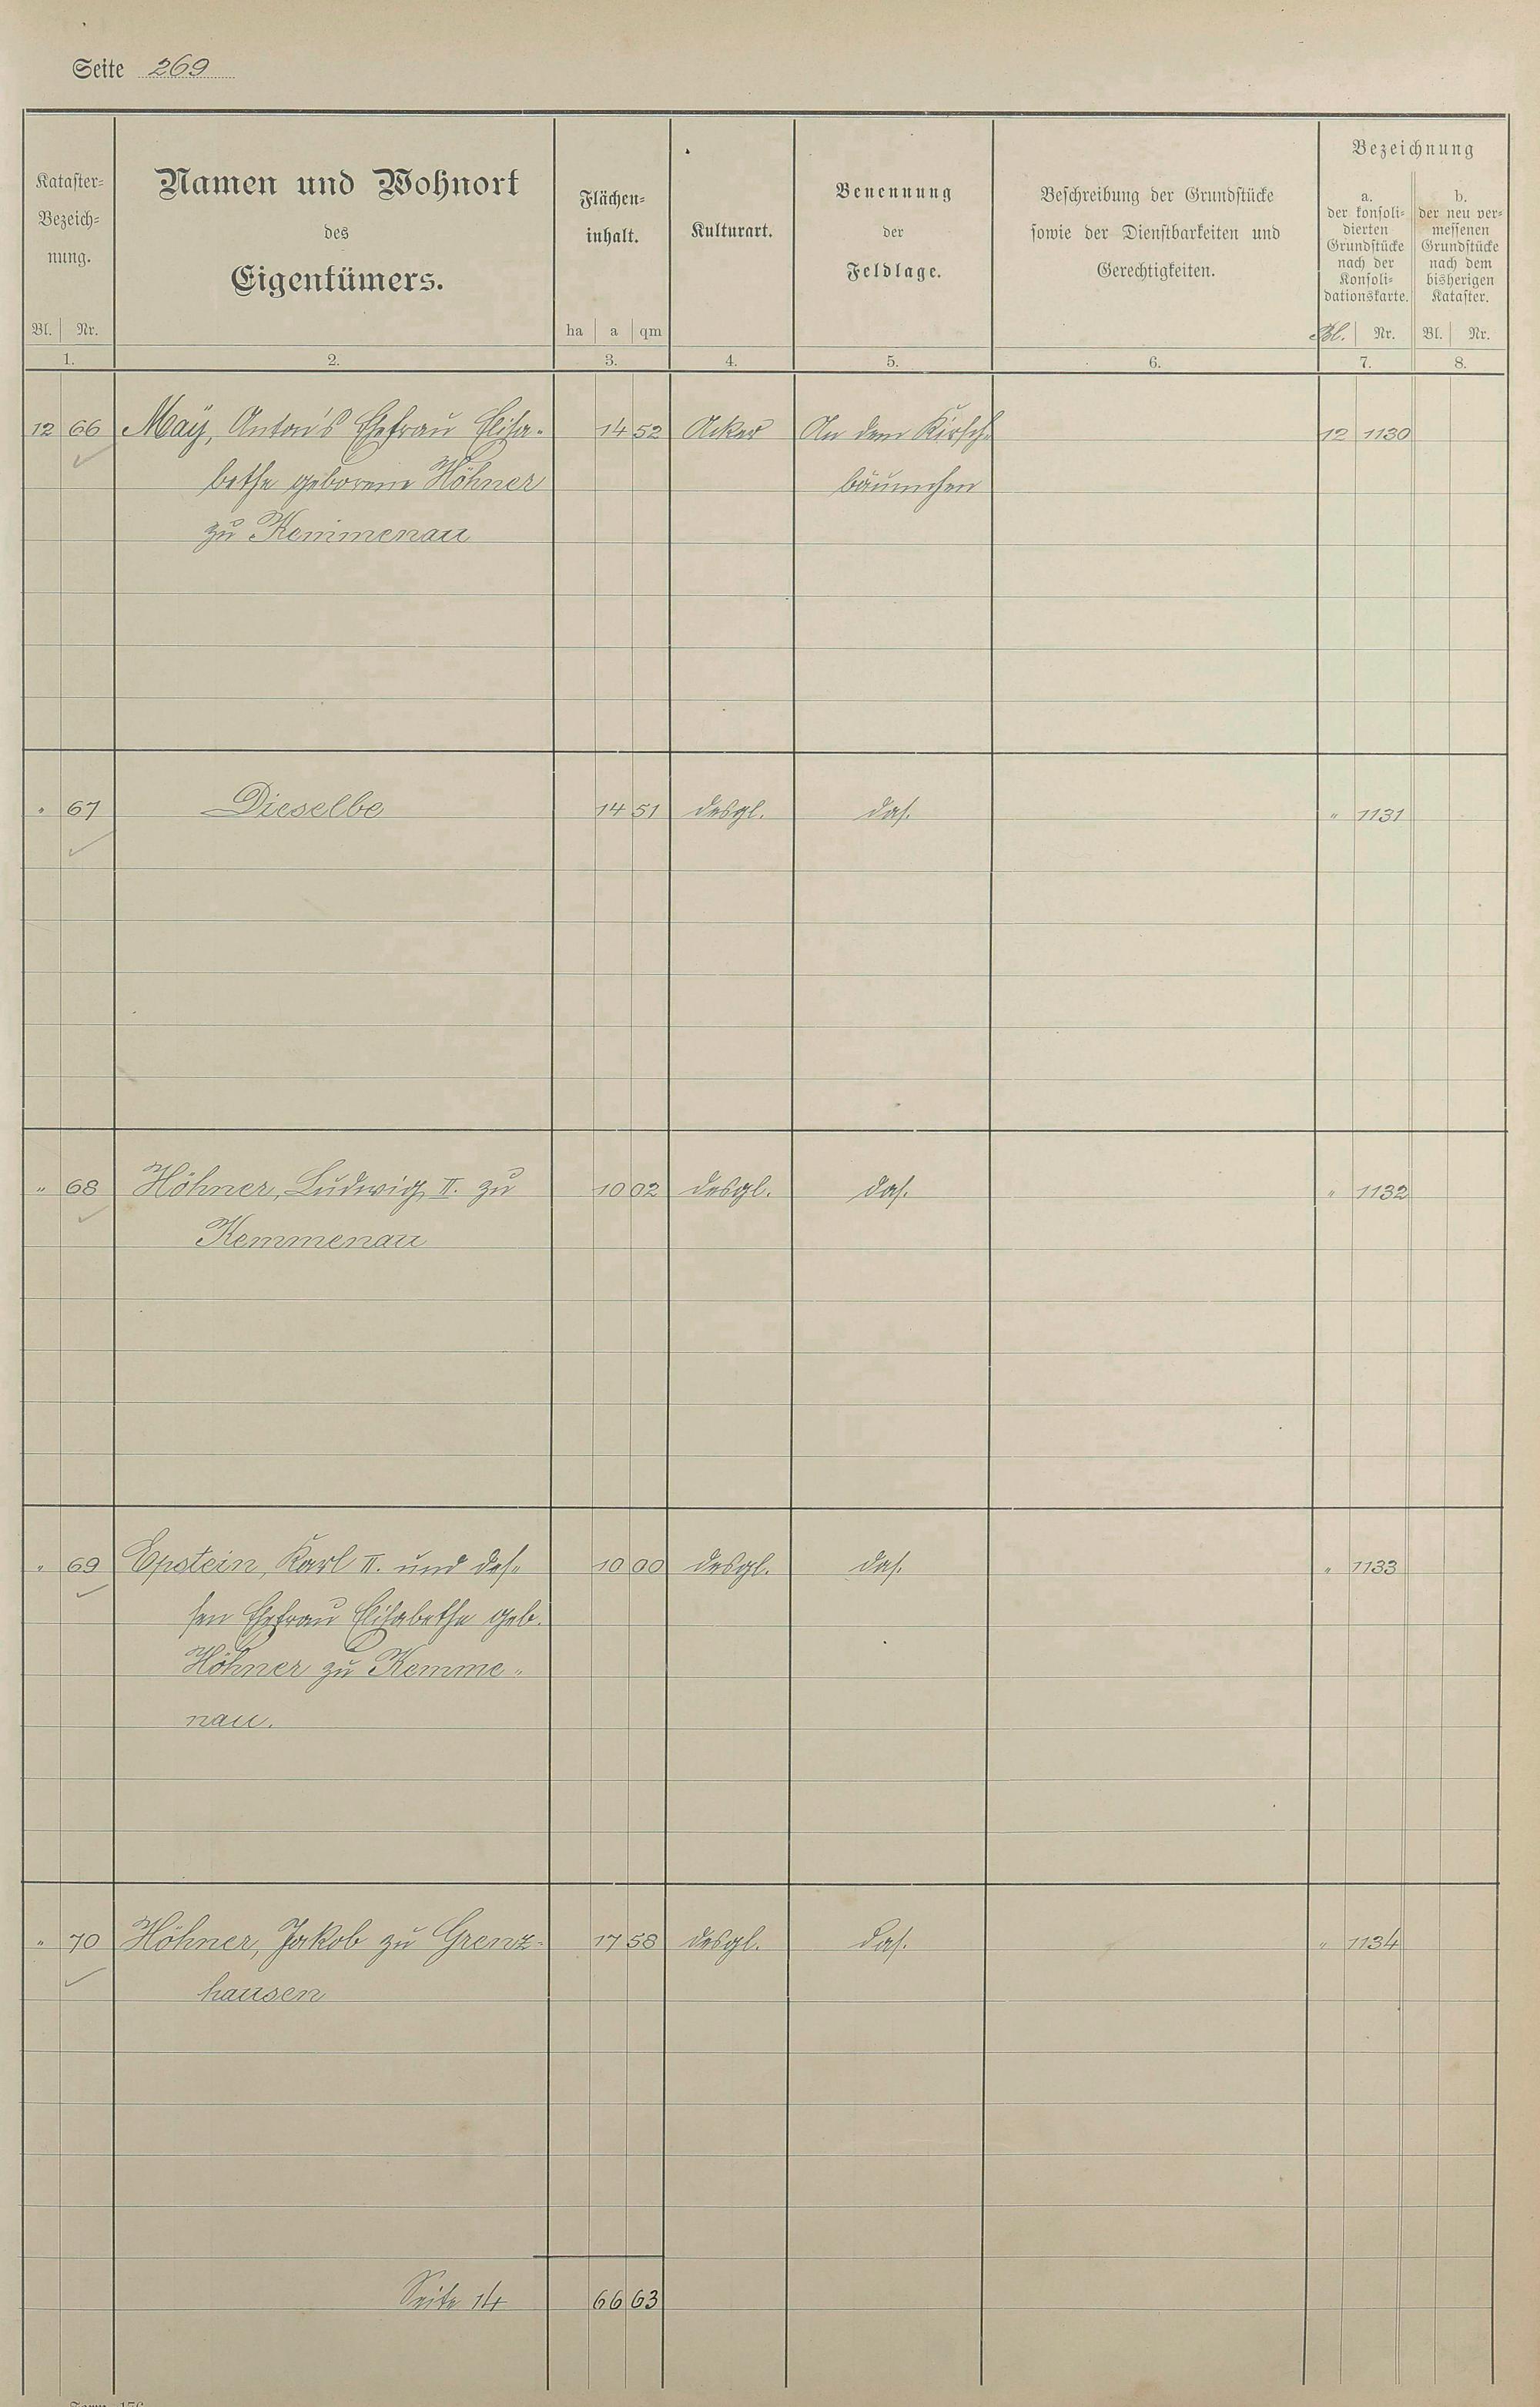 Seite 269
Kataster-
Bezeich-
nung.
Bl. Nr.
1.
Namen und Wohnort
des
Eigentümers.
2.
Flächen-
inhalt.
ha a qm
3.
Kulturart.
4.
Benennung
der
Feldlage.
5.
Beschreibung der Grundstücke
sowie der Dienstbarkeiten und
Gerechtigkeiten.
6.
Bezeichnung
a.
der konsoli-
dierten
Grundstücke
nach der
Konsoli-
dationskarte.
Bl. Nr.
7.
b.
der neu ver-
messenen
Grundstücke
nach dem
bisherigen
Kataster.
Bl. Nr.
8.
12 66 Maÿ, Anton's Ehefrau Elisa- 14 52 Acker An dem Kirsch- 12 1130
bethe geborene Höhner bäumchen
zu Kemmenau
" 67 Dieselbe 14 51 desgl. das. " 1131
" 68 Höhner, Ludwig II. zu 10 02 desgl. das. " 1132
Kemmenau
" 69 Epstein, Karl II. und des- 10 00 desgl. das. " 1133
sen Ehefrau Elisabethe geb.
Höhner zu Kemme-
nau.
" 70 Höhner, Jakob zu Grenz- 17 58 desgl. das. " 1134
hausen
Seite 66 63